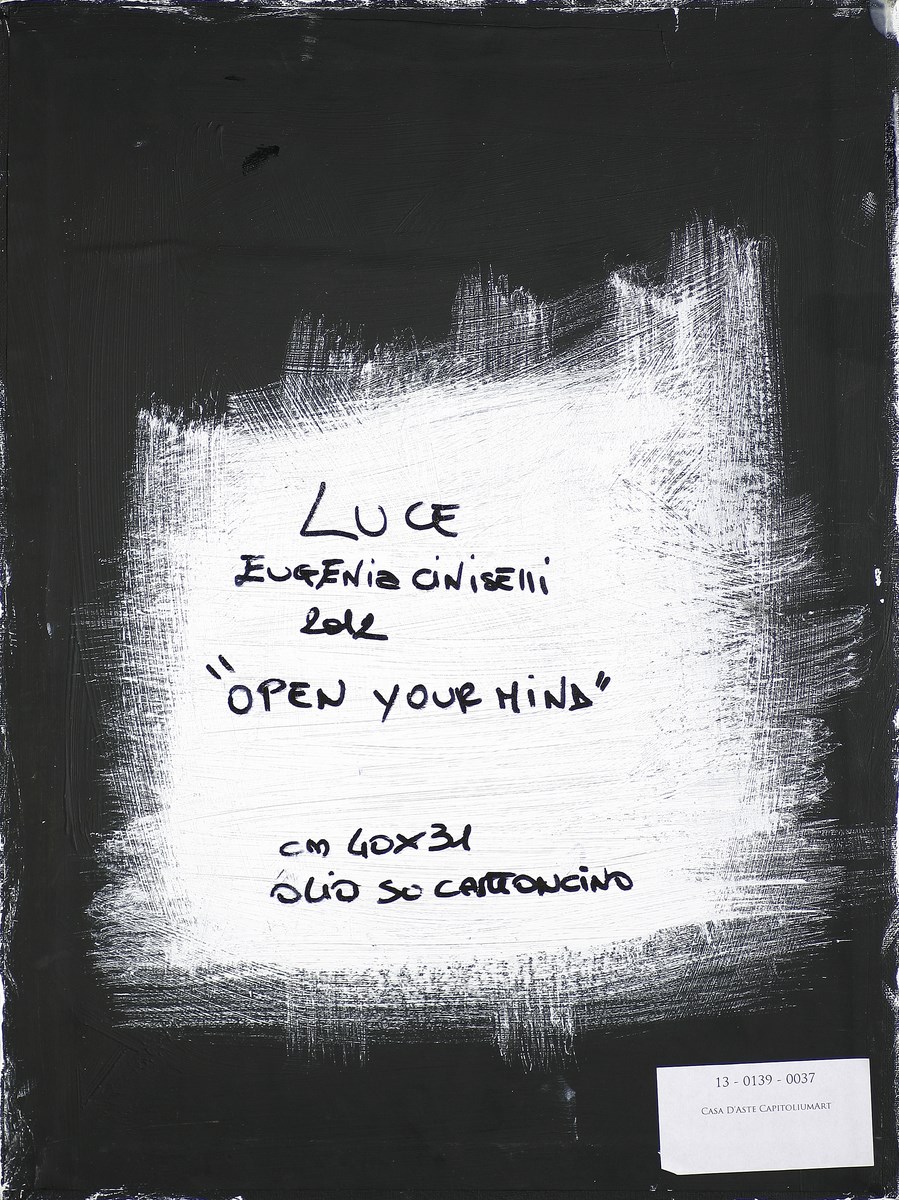 LUCE
EUGENIa CINISElli
2012
"OPEN YOUR MIND"
cm 40x31
OLIO SU CARTONCINO
13 - 0139 - 0037
CASA D'ASTE CAPITOLIUMART